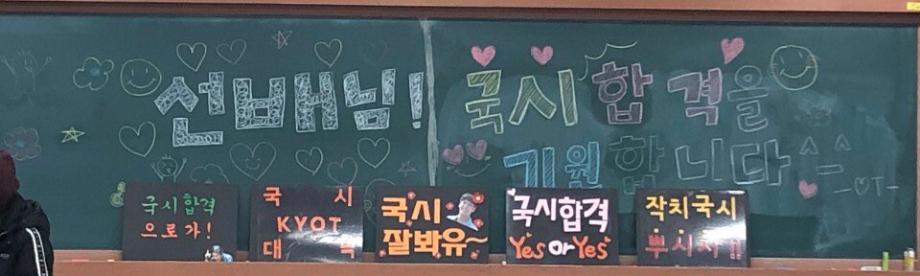 선배님! 국시합격을
기원합니다 ^-^
-ㅠT-
국시합격
으로가!
국 시
KYOT
대
국시
잘봐유~
국시합격
Yes or Yes
작치국시
뿌시자!!